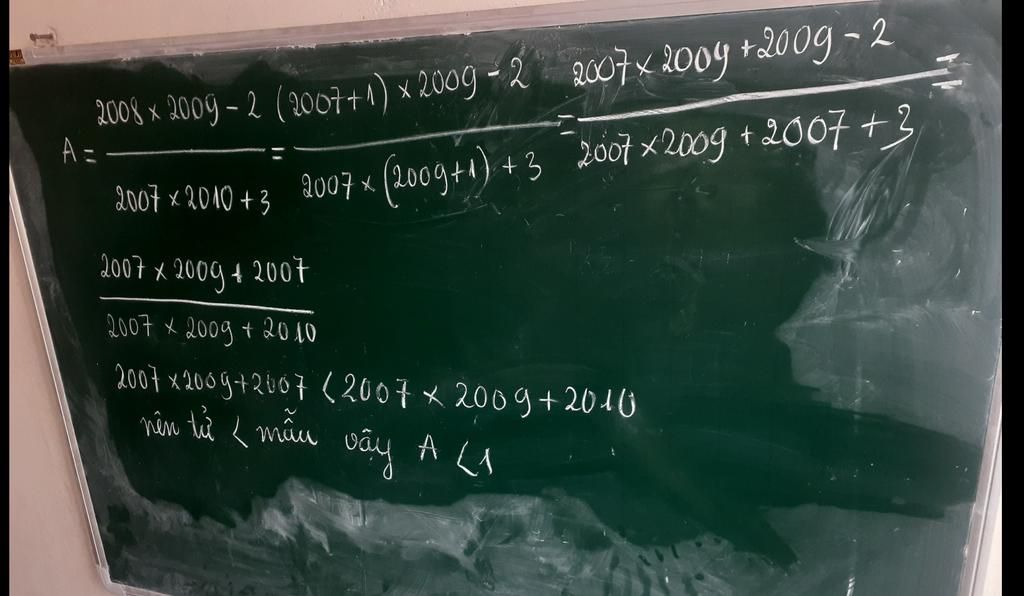 2008 × 2009 - 2 (2007+1) × 2009 - 2 2007 × 2009 + 2009 - 2
A = = = =
2007 × 2010 + 3 2007 × (2009+1) + 3 2007 × 2009 + 2007 + 3
2007 × 2009 + 2007
2007 × 2009 + 2010
2007 × 2009 + 2007 < 2007 × 2009 + 2010
nên tử < mẫu vây A < 1